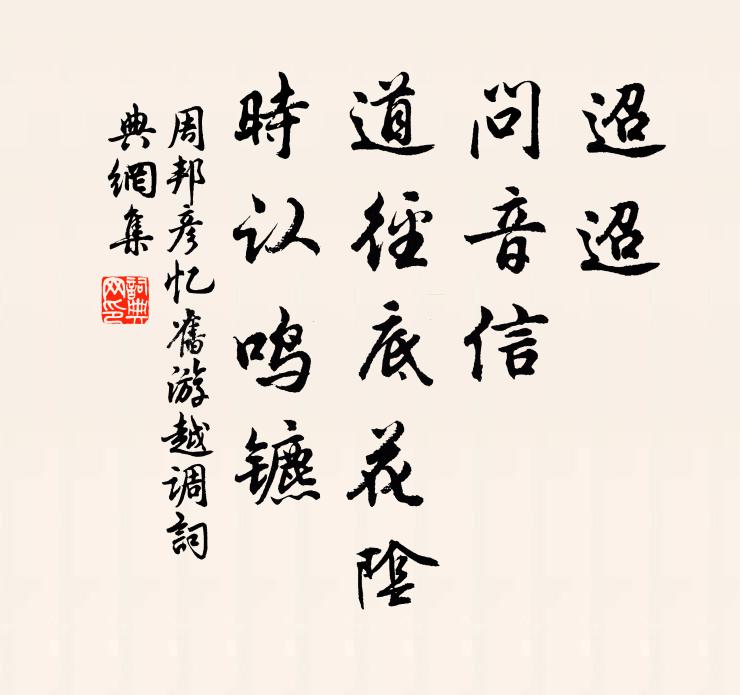 迢迢
问音信
道径底花阴
時认鸣镳
周邦彦忆舊游越调詞
典網集
詞典网印